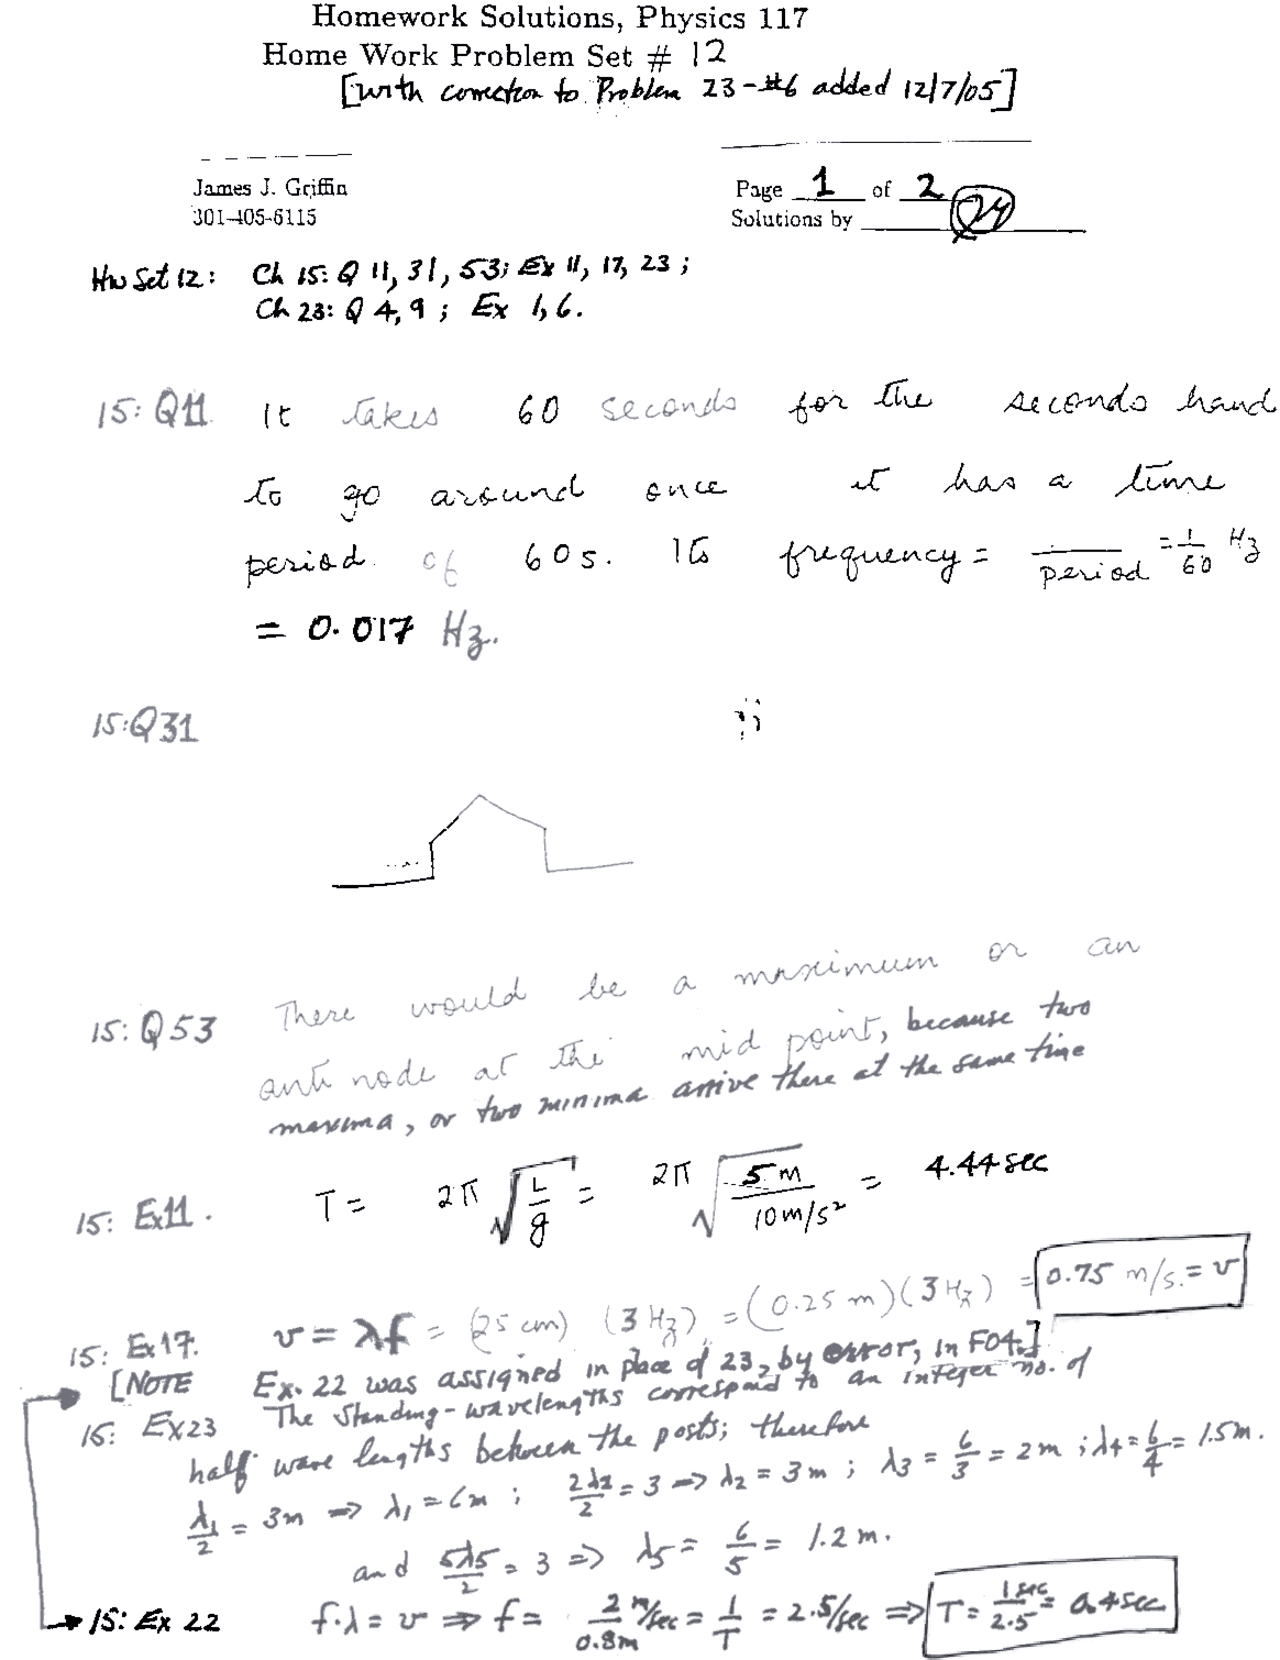 Homework Solutions, Physics 117
Home Work Problem Set # 12
[with correction to Problem 23-#6 added 12/7/05]
James J. Griffin
301-405-6115
Page 1 of 2
Solutions by
HW Set 12: Ch 15: Q 11, 31, 53; Ex 11, 17, 23;
Ch 23: Q 4, 9; Ex 1, 6.
15: Q11. It takes 60 seconds for the seconds hand
to go around once it has a time
period of 60s. Its frequency = /period = 1/60 Hz
= 0.017 Hz.
15:Q31
15: Q53 There would be a maximum or an
anti node at the mid point, because two
maxima, or two minima arrive there at the same time
15: Ex11. T = 2π √(L/g) = 2π √(5 m/10 m/s²) = 4.44 sec
15: Ex17. v = λf = (25 cm) (3 Hz) = (0.25 m)(3 Hz) = 0.75 m/s. = v
[NOTE Ex. 22 was assigned in place of 23, by error, in F04.]
15: Ex23 The standing-wavelengths correspond to an integer no. of
half wave lengths between the posts; therefore
λ1/2 = 3m => λ1 = 6m ; 2λ2/2 = 3 => λ2 = 3m ; λ3 = 6/3 = 2m ; λ4 = 6/4 = 1.5m.
and 5λ5/2 = 3 => λ5 = 6/5 = 1.2 m.
15: Ex 22 f·λ = v => f = 2 m/sec/0.8m = 1/T = 2.5/sec => T = 1 sec/2.5 = 0.4 sec